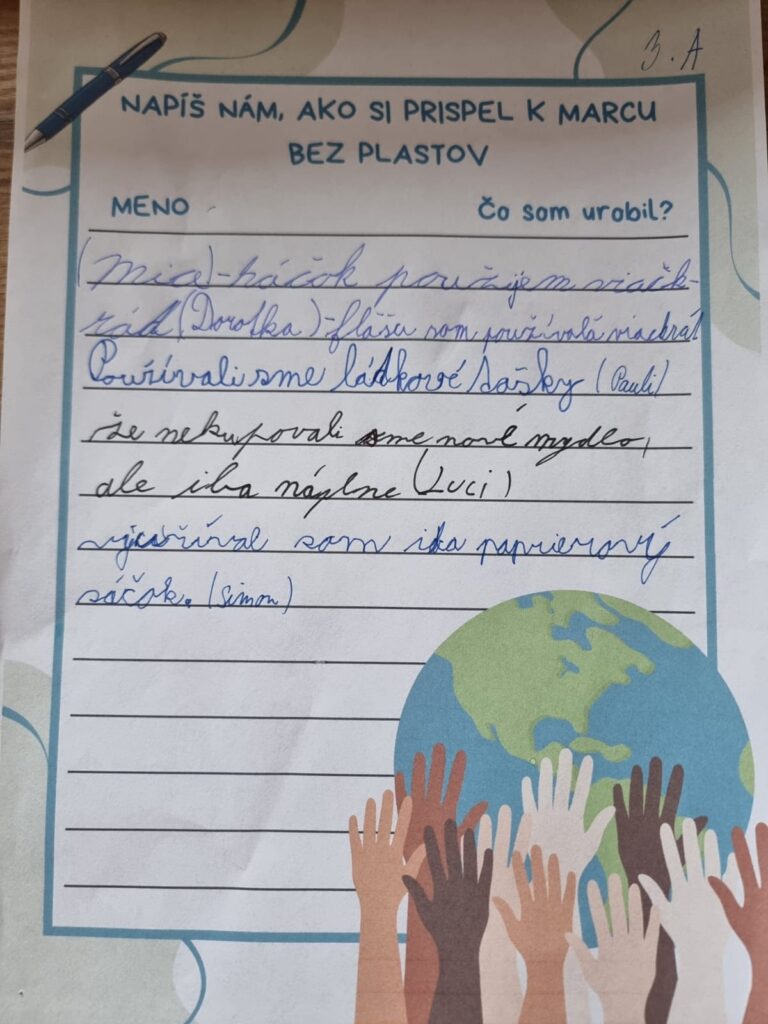 3. A
NAPÍŠ NÁM, AKO SI PRISPEL K MARCU
BEZ PLASTOV
MENO
Čo som urobil?
(Mia)-háčok použijem viack-
rát (Dorotka)-flašu som používala viackrát
Používali sme látkové tašky (Pauli)
že nekupovali sme nové mydlo,
ale iba náplne (Luci)
som iba paprierový
sáčok. (Simon)